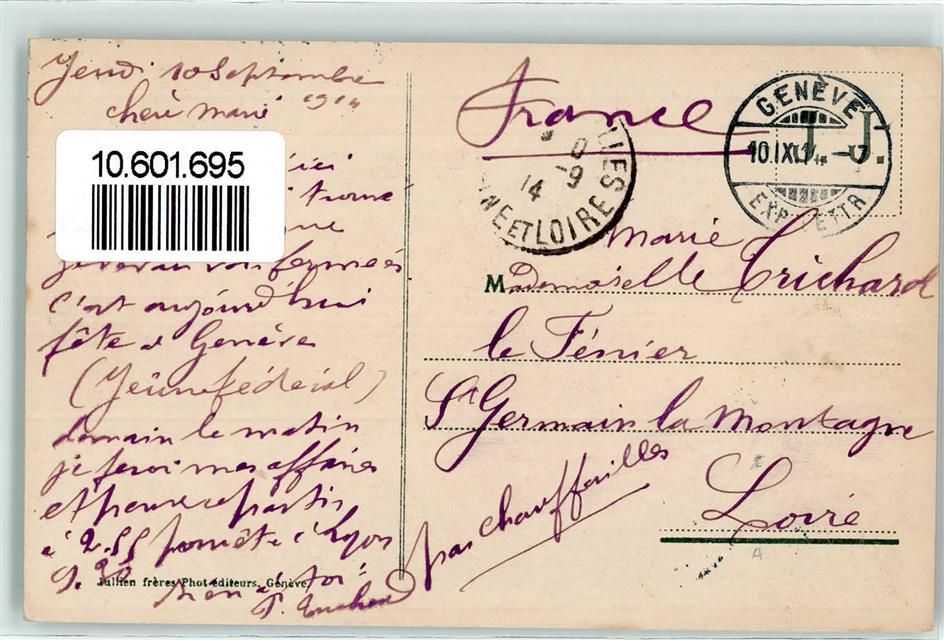 Jeudi 10 Septembre
1914
chère Marie
10.601.695
ici
trouvé
fermées
c'est aujourd'hui
fête à Genève
(Jeûne fédéral)
demain le matin
je ferai mes affaires
et pense partir
à 2.55 pour être à Lyon
Rien à toi
Jullien frères Phot-éditeurs, Genève
France
GENÈVE
10.IX.14.-7.
EXP. LETTR.
14 -9
ET LOIRE
Marie
Mademoiselle Crichard
le Fénier
St Germain la Montagne
par Chauffailles
Loire